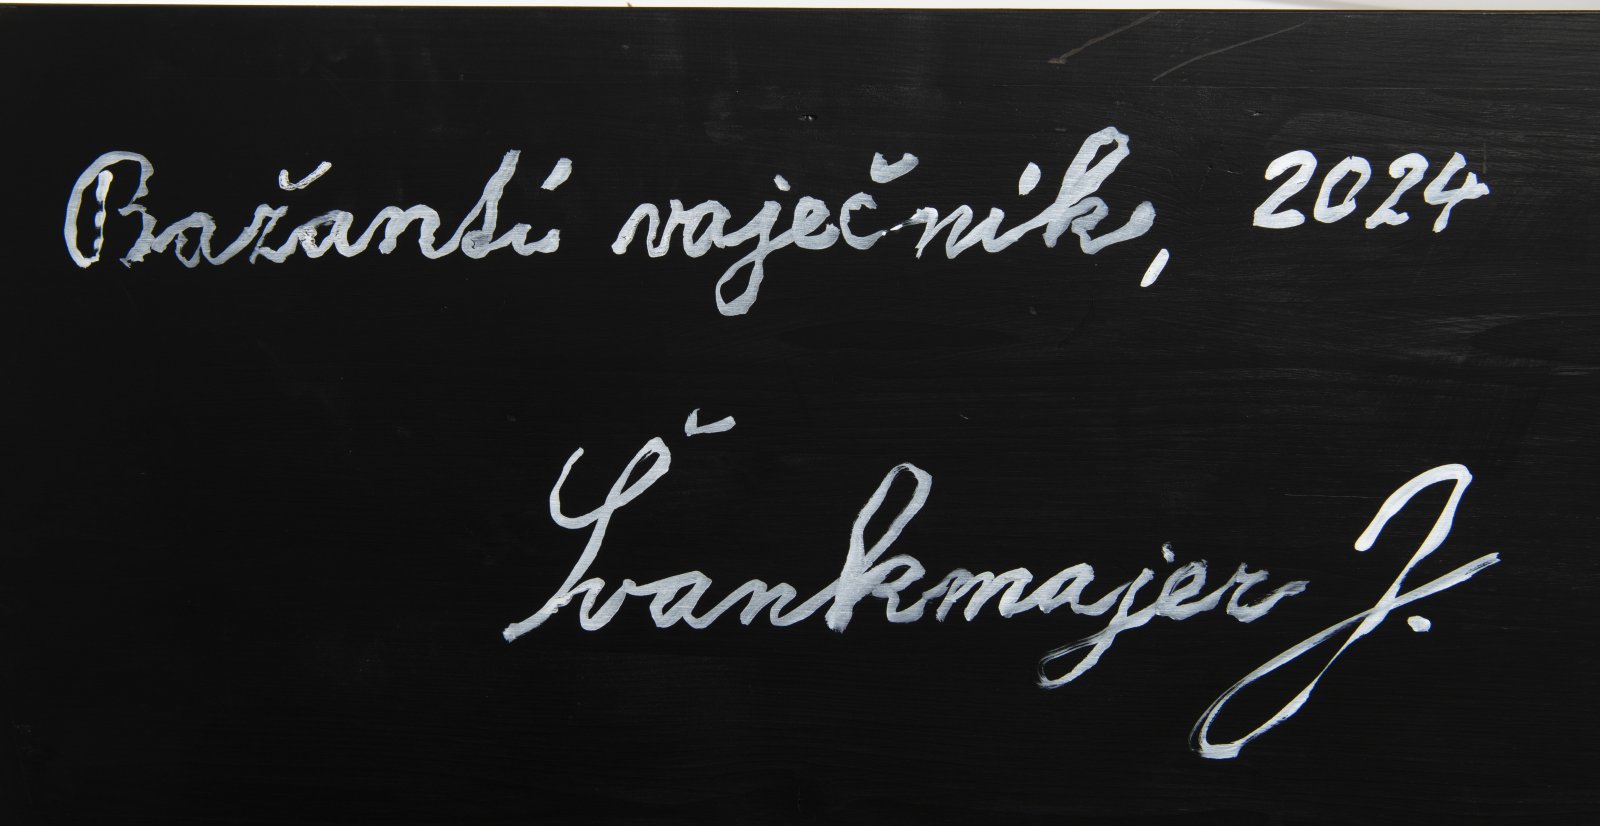 Bažantí vaječník, 2024
Švankmajer J.